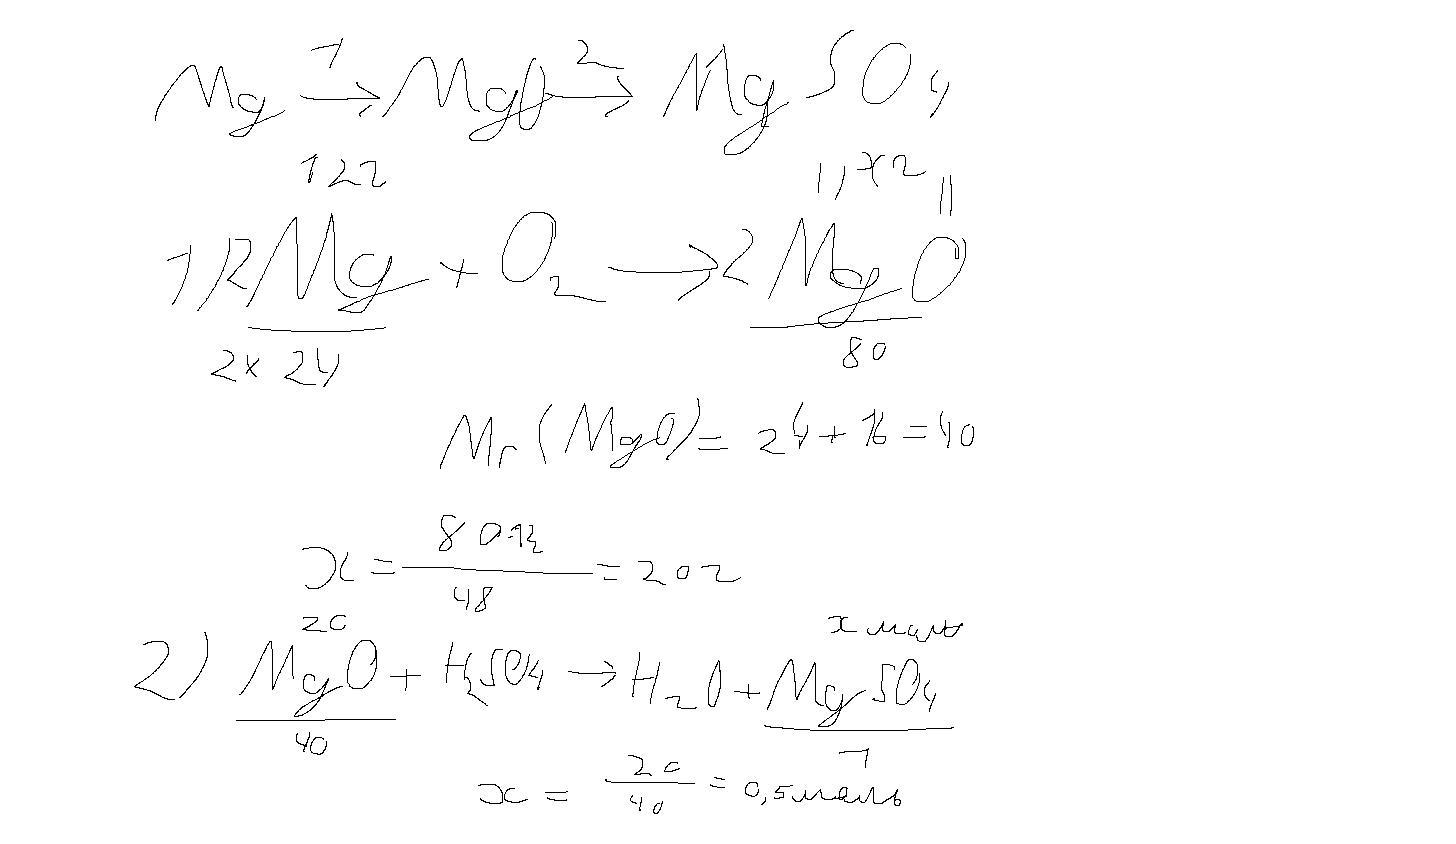 1 2
Mg → MgO → MgSO4
12г "x г"
1) 2Mg + O2 → 2MgO
2x 24 80
Mr (MgO) = 24 + 16 = 40
x = 80·12 / 48 = 20г
20 x моль
2) MgO + H2SO4 → H2O + MgSO4
40 1
x = 20 / 40 = 0,5 моль